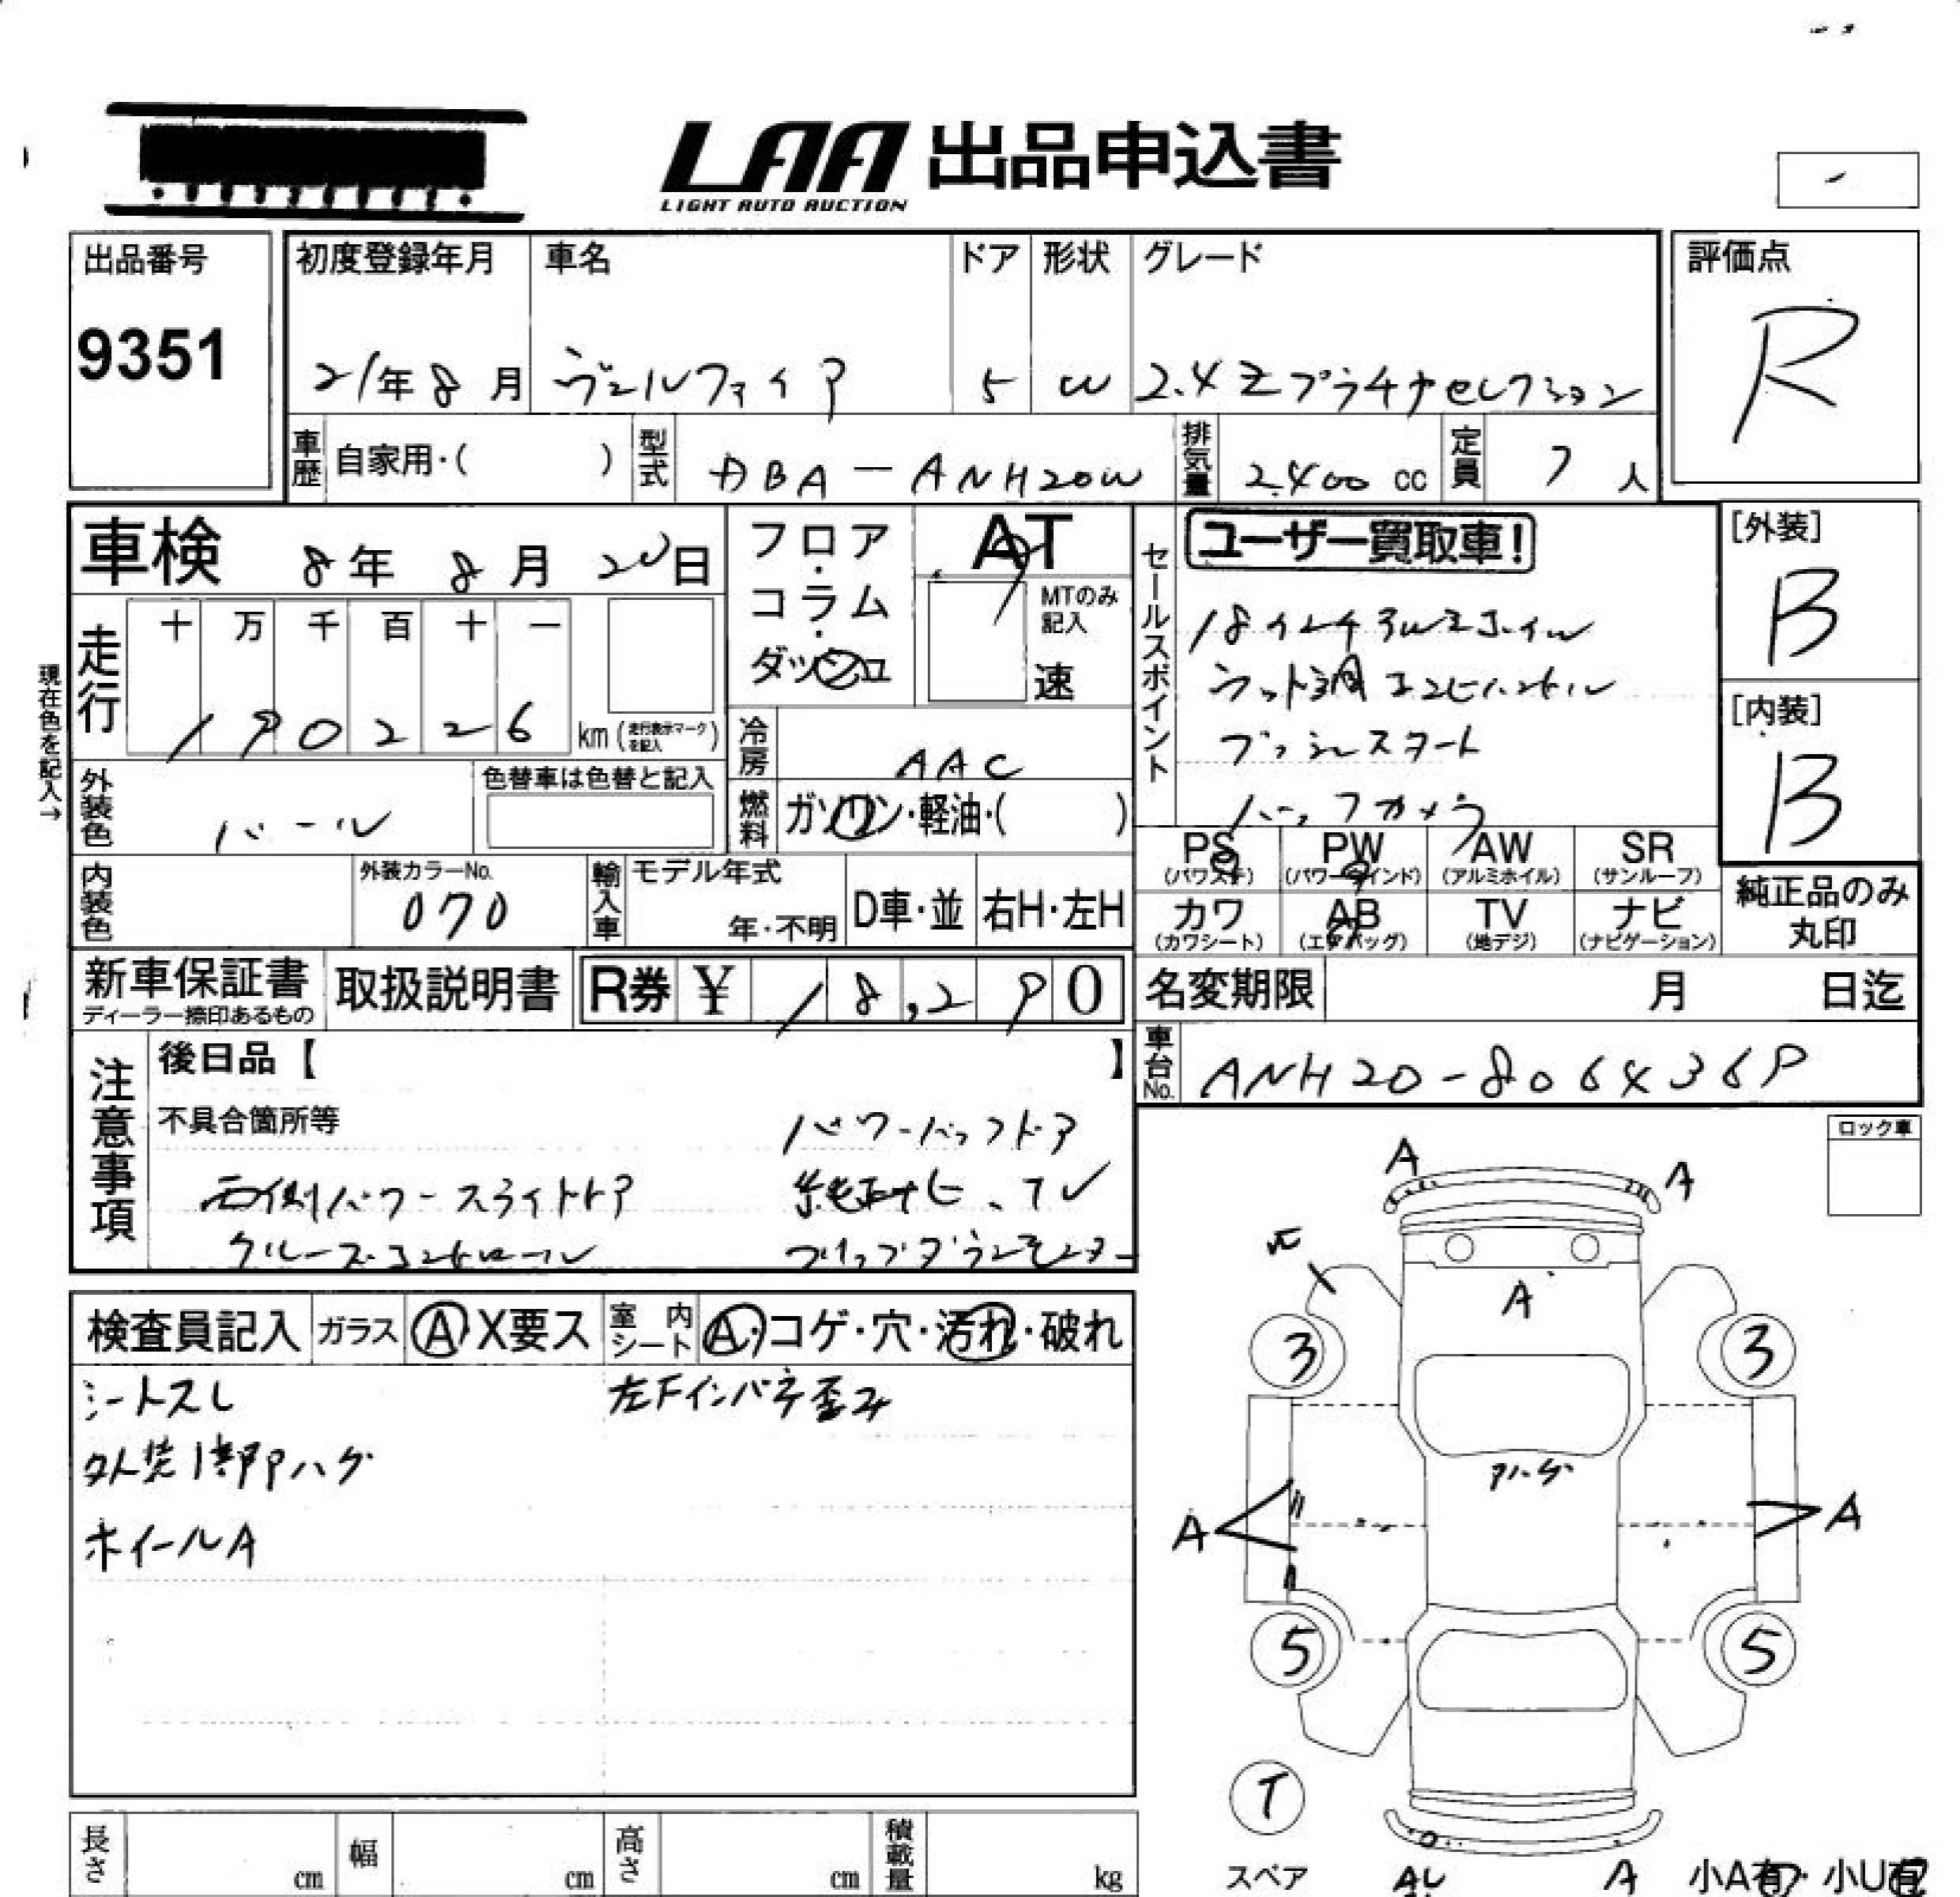 LAA 出品申込書
LIGHT AUTO AUCTION
出品番号
9351
初度登録年月 車名 ドア 形状 グレード
21年 8月 ヴェルファイア 5 W 2.4 Z プラチナセレクション
評価点
R
車歴 自家用・( ) 型式 DBA-ANH20W 排気量 2400 cc 定員 7 人
車検 8年 8月 20日
フロア・コラム・ダッシュ
AT
MTのみ記入
速
セールスポイント
ユーザー買取車!
18インチ
プッシュスタート
バックカメラ
[外装]
B
[内装]
B
現在色を記入→
走行 十 万 千 百 十 一
190226 km (走行表示マークを記入)
冷房 AAC
外装色 パール
色替車は色替と記入
燃料 ガソリン・軽油・( )
PS (パワステ) PW (パワーウインド) AW (アルミホイル) SR (サンルーフ)
カワ (カワシート) AB (エアバッグ) TV (地デジ) ナビ (ナビゲーション)
純正品のみ丸印
内装色
外装カラーNo.
070
輸入車 モデル年式
年・不明 D車・並 右H・左H
新車保証書
ディーラー捺印あるもの
取扱説明書 R券 ¥ 18,290
名変期限 月 日迄
車台No. ANH20-8064369
注意事項
後日品【 】
不具合箇所等
パワーバックドア
両側パワースライドドア 純正ナビ、TV
クルーズコントロール フリップダウンモニター
検査員記入 ガラス A X要ス 室内シート A・コゲ・穴・汚れ・破れ
シートスレ 左Fインパネ歪み
外装1部Pハゲ
ホイールA
ロック車
A
A
A
3
3
Pハゲ
A
A
5
5
T
スペア
A
小A有・小U有
長さ cm 幅 cm 高さ cm 積載量 kg